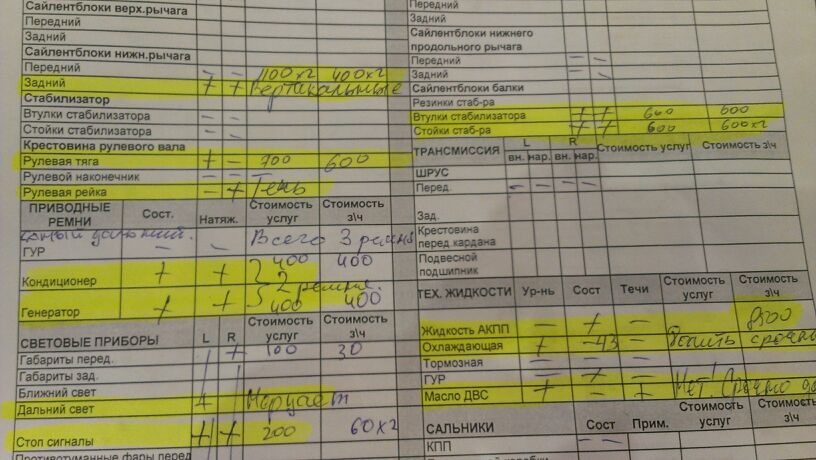 Сайлентблоки верх.рычага
Передний
Задний
Сайлентблоки нижн.рычага
Передний – – 1100х2 400х2
Задний + + Вертикальные
Стабилизатор
Втулки стабилизатора – –
Стойки стабилизатора – –
Крестовина рулевого вала
Рулевая тяга + – 700 600
Рулевой наконечник – –
Рулевая рейка – + Течь
ПРИВОДНЫЕ РЕМНИ Сост. Натяж. Стоимость услуг Стоимость з\ч
Всего 3 ремня
ГУР – –
Кондиционер + + 400 400
2 ремня.
Генератор + + 400 400
СВЕТОВЫЕ ПРИБОРЫ L R Стоимость услуг Стоимость з\ч
Габариты перед. + 100 30
Габариты зад.
Ближний свет
Дальний свет +
Стоп сигналы + + 200 60х2
Противотуманные фары перед
Передний
Задний
Сайлентблоки нижнего
продольного рычага
Передний – –
Задний – –
Сайлентблоки балки
Резинки стаб-ра
Втулки стабилизатора + + 600 600
Стойки стаб-ра + + 600 600х2
ТРАНСМИССИЯ L R Стоимость услуг Стоимость з\ч
вн. нар. вн. нар.
ШРУС
Перед. – – – –
Зад.
Крестовина
перед.кардана
Подвесной
подшипник
ТЕХ. ЖИДКОСТИ Ур-нь Сост Течи Стоимость услуг Стоимость з\ч
Жидкость АКПП – + –
Охлаждающая + -43 – срочно
Тормозная – – –
ГУР – + –
Масло ДВС + – + Нет! Срочно
САЛЬНИКИ Сост Прим. Стоимость услуг Стоимость з\ч
КПП – –